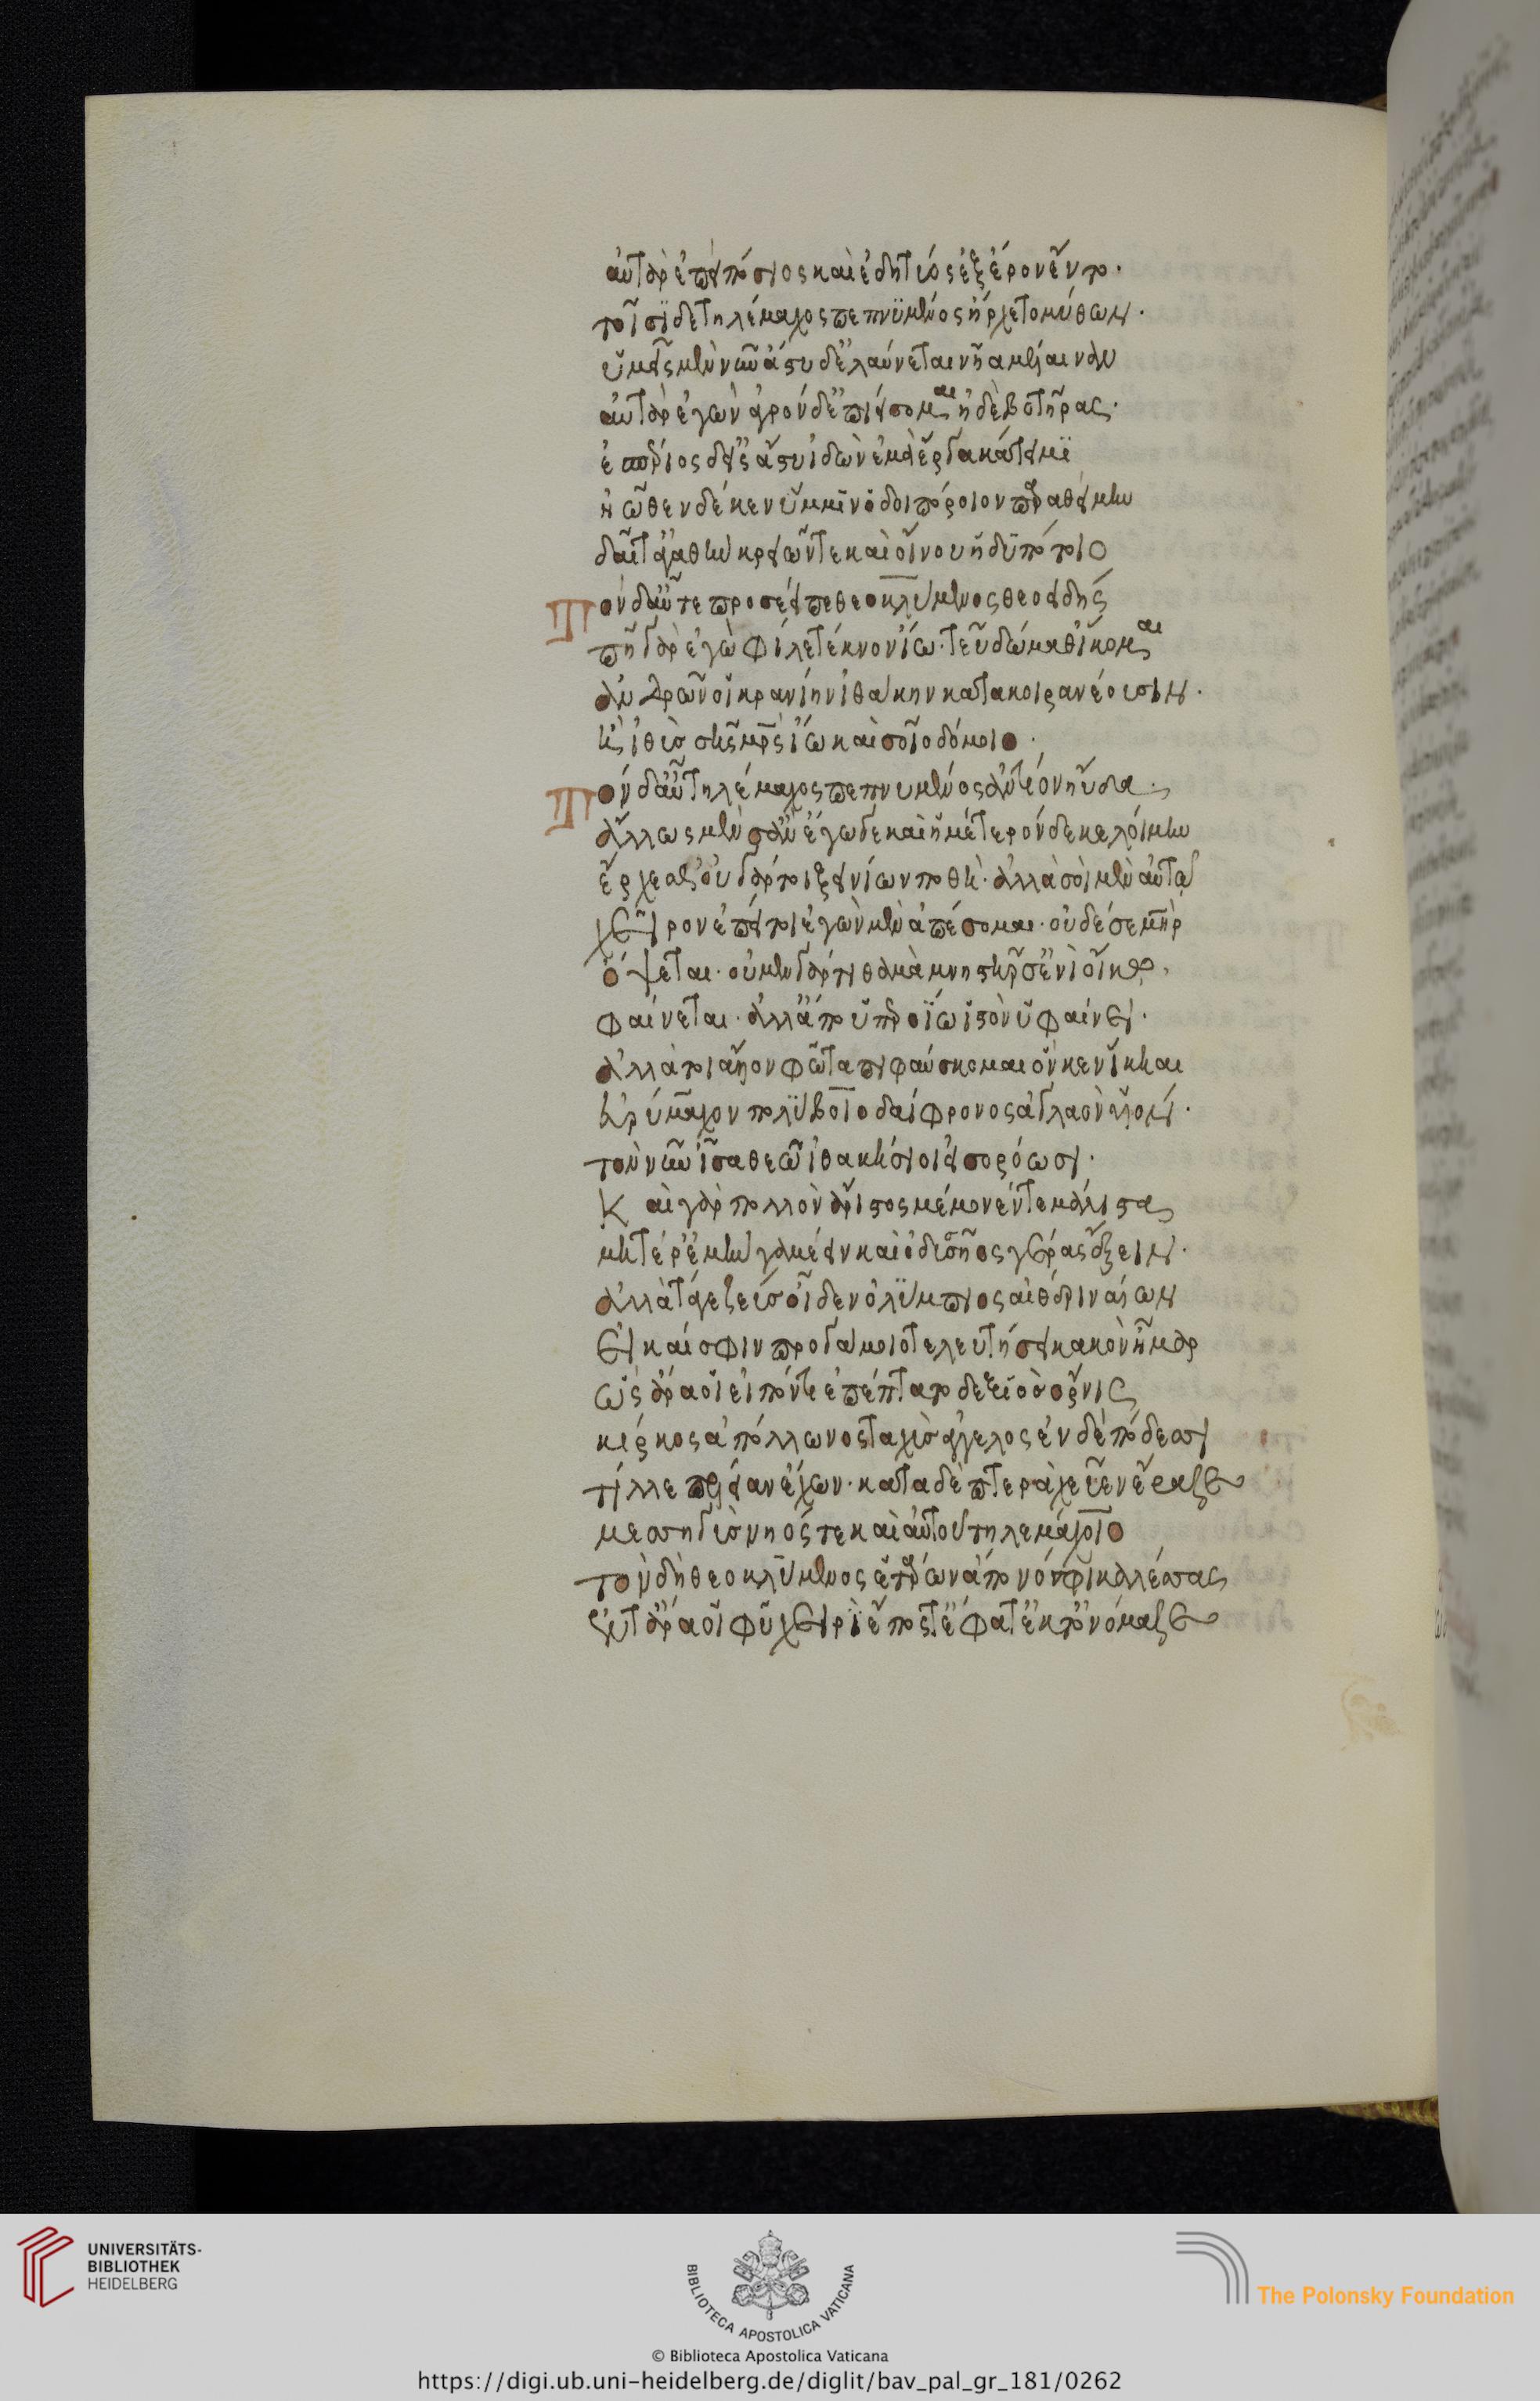 αὐτὰρ ἐπεὶ πόσιος καὶ ἐδητύος ἐξ έρον ἕντο·
τοῖσϊ δε τηλέμαχος πεπνϋμένος ἤρχετο μύθων·
ὑμεῖς μὲν νῦν ἄστυ δ' ἐλαύνεται νῆα μέλαιναν
αὐτὰρ ἐγὼν ἀγρόνδ' ἐπιείσομαι ἠδὲ βοτῆρας·
ἑσπέριος δ' εἰς ἄστυ ἰδὼν ἐμὰ ἔργα κάτειμϊ
ἠῶθεν δέ κεν ὔμμϊν ὁδοιπόριον παραθείμην
δαῖτ' ἀγαθὴν κρειῶν τε καὶ οἴνου ἡδϋπότοιο
Τὸν δ' αὖτε προσέειπε θεοκλύμενος θεοειδής
πῆ γὰρ ἐγὼ φίλε τέκνον ἴω· τεῦ δώμαθ' ἵκομαι
ἀνδρῶν οἳ κραναὴν ἰθάκην κατακοιρανέουσιν·
ἢ ἰθὺς σῆς μητρὸς ἴω καὶ σοῖο δόμοιο·
Τὸν δ' αὖ τηλέμαχος πεπνυμένος ἀντίον ηὔδα·
ἄλλως μὲν σ' ἂν ἔγωγε καὶ ἡμέτερόνδε κελοίμην
ἔρχεσθ' οὐ γάρ τοι ξενίων ποθὴ· ἀλλὰ σοὶ μὲν αὐτῶ
χεῖρον ἐπεί τοι ἐγὼν μὲν ἀπέσομαι· οὐδέ σε μήτηρ
ὄψεται· οὐ μὲν γάρ τι θαμὰ μνηστῆρσ' ἐνὶ οἴκω·
φαίνεται· ἀλλ' ἄπο ὑπερωΐω ἱστὸν ὑφαίνει·
ἀλλά τοι ἄλλον φῶτα πιφαύσκομαι ὅν κεν ἵκηαι
Εὐρύμαχον πολύβοιο δαίφρονος ἀγλαὸν υἱόν·
τὸν νῦν ἶσα θεῶ ἰθακήσιοι εἰσορόωσι·
Καὶ γὰρ πολλὸν ἄριστος μέμονέν τε μάλιστα
μητέρ' ἐμὴν γαμέειν καὶ ὀδυσσῆος γέρας ἕξειν·
ἀλλὰ τά γε ζεὺς οἶδεν ὀλύμπιος αἰθέρι ναίων
εἰ καί σφιν προ γάμοιο τελευτήσει κακὸν ἦμαρ
ὣς ἄρα οἱ εἰπόντι ἐπέπτατο δεξιὸς ὄρνις
κίρκος ἀπόλλωνος ταχὺς ἄγγελος ἐν δὲ πόδεσσι
τίλλε πέλειαν ἔχων· κατα δὲ πτερὰ χεῦεν ἔραζε
μεσσηγὺς νηός τε καὶ αὐτοῦ τηλεμάχοιο
τὸν δὴ θεοκλύμενος ἑτάρων ἀπο νόσφι καλέσσας
ἔν τ' ἄρα οἱ φῦ χειρὶ ἔπος τ' ἔφατ' ἔκ τ' ὀνόμαζε
UNIVERSITÄTS-
BIBLIOTHEK
HEIDELBERG
BIBLIOTECA APOSTOLICA VATICANA
The Polonsky Foundation
© Biblioteca Apostolica Vaticana
https://digi.ub.uni-heidelberg.de/diglit/bav_pal_gr_181/0262